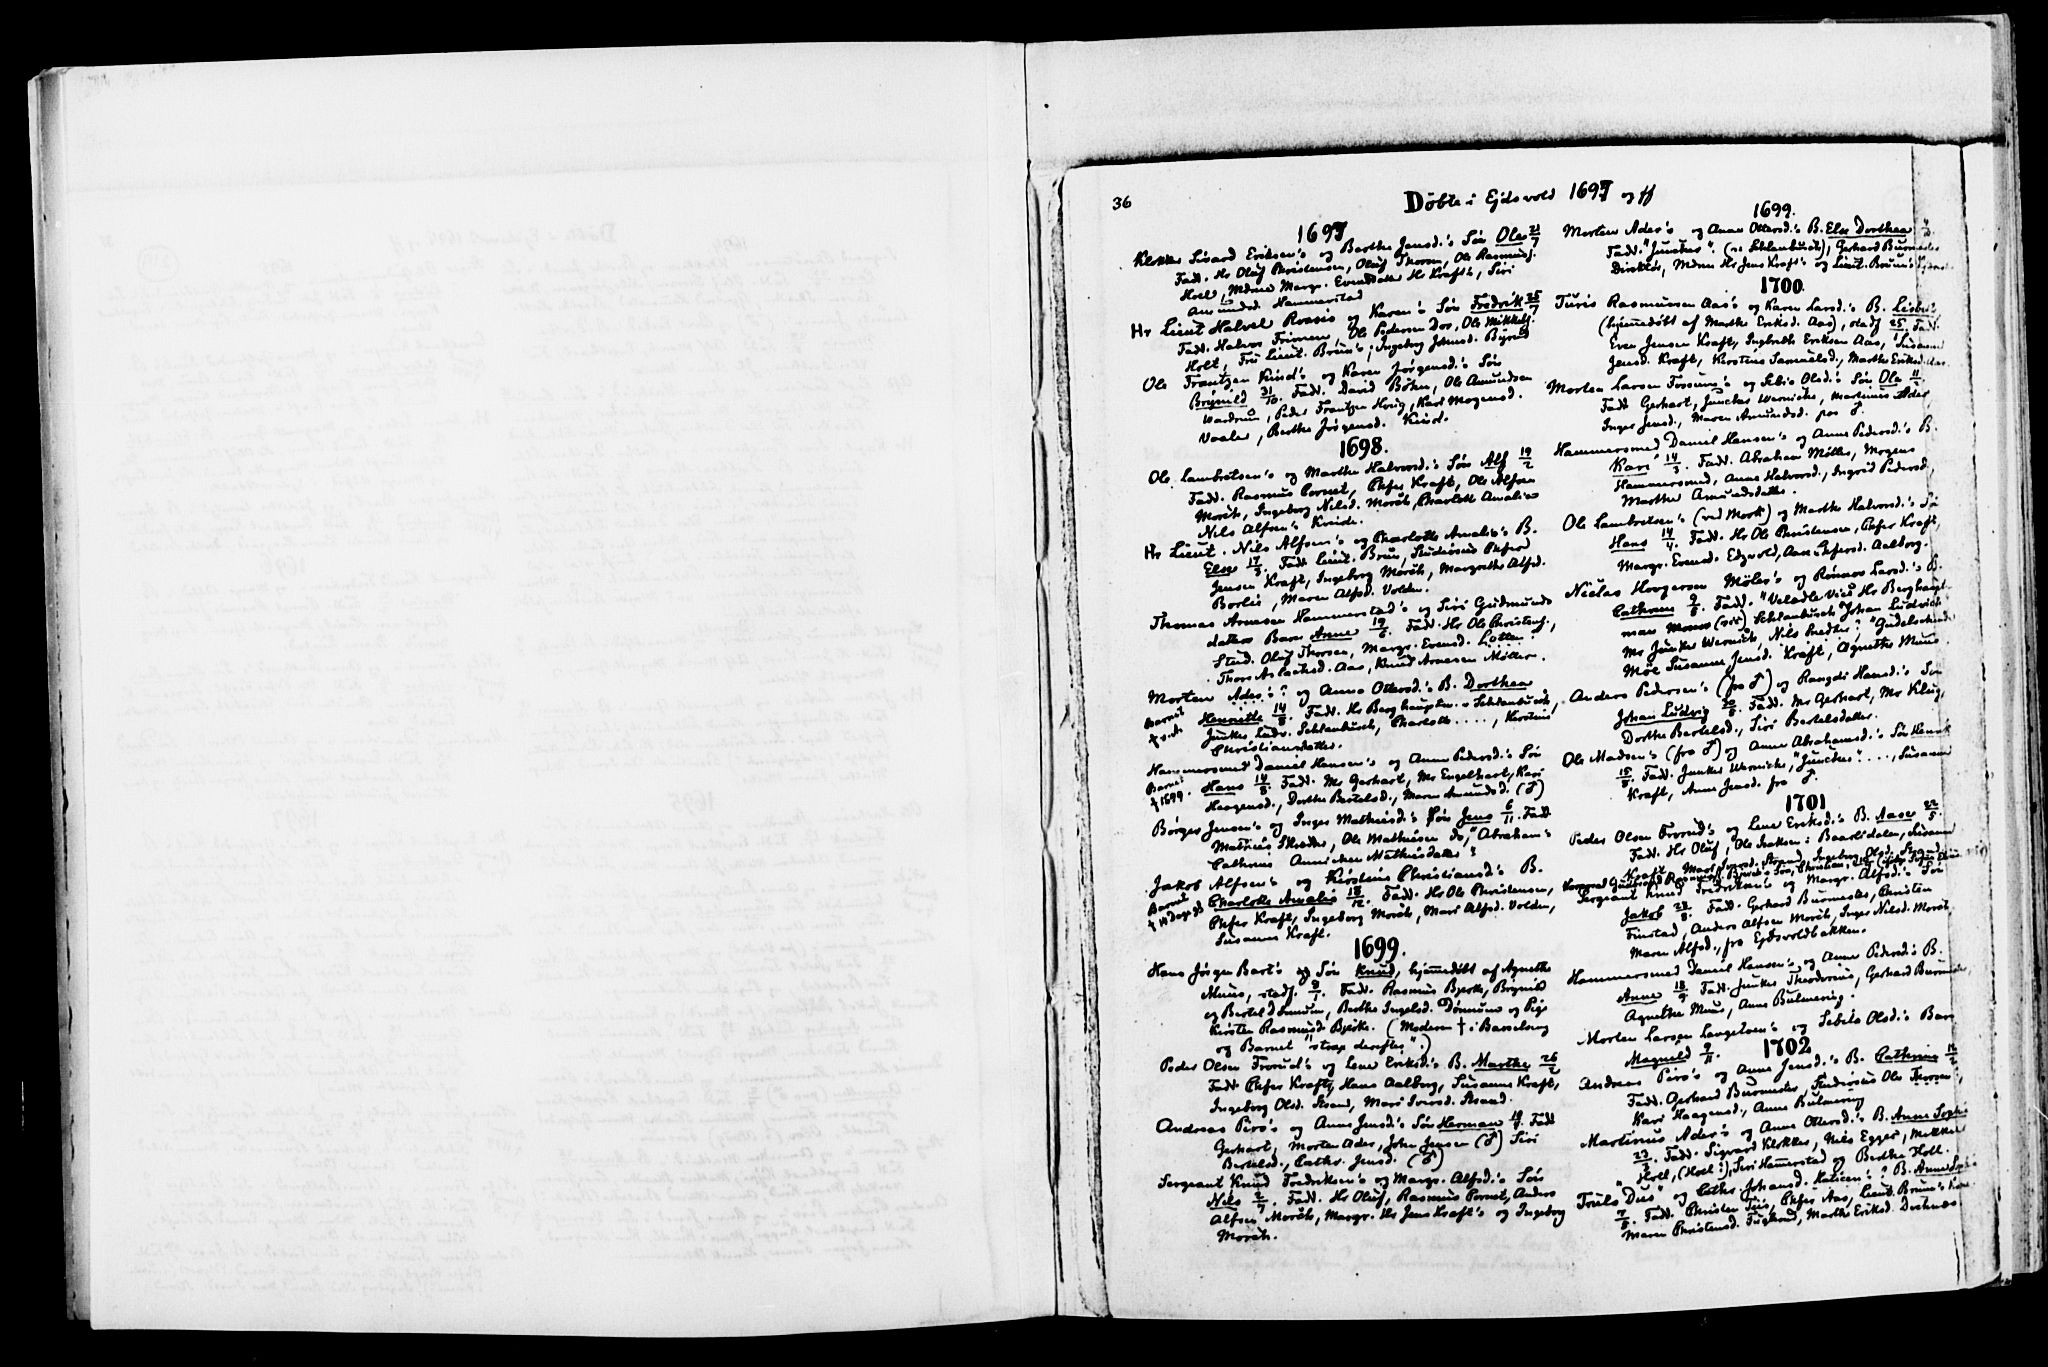 36
Døbte i Ejdsvold 1697 og ff
1697
Klokker Sivard Eriksen's og Berthe Jensd.'s Søn Ole 21/7
Fadd. Hr Oluf Christensen, Oluf Thoresn, Ole Rasmusf.
Hoel, Mdme Margr. Evensdatter Hr Kraft's, Siri
Amundsd. Hammerstad
Hr Lieut Halvel Roasis og Karen's Søn Fredrik 25/7
Fadd. Halvor Frinnen Ole Pedersen Doe, Ole Mikkelf.
Holt, Fru Lieut. Brun's, Ingeborg Johnsd. Byrud
Ole Frantzen Kind's og Karen Jørgensd.'s Søn
Brynild 31/10. Fadd. David Böhn, Ole Amundsen
Vaarun, Peder Frantzen Hovig, Kari Mogensd.
Vaaler, Berthe Jörgensd. Kind.
1698.
Ole Lambretsen's og Marthe Halvorsd.'s Søn Alf 19/2
Fadd. Rasmus Cornet, Chrfer Kraft, Ole Alfsen
Morch, Ingeborg Nilsd. Morch, Charlotte Amalia
Nils Alfsen's Kvinde.
Hr Lieut. Nils Alfsen's og Charlotte Amalia's B.
Else 17/3. Fadd Lieut. Brun, Studiosus Chrfer
Jensen Kraft, Ingeborg Mörch, Margrethe Alfsd.
Borlie, Maren Alfsd. Volden.
Thomas Arnesen Hammerstad's og Siri Gudmunds
datters Barn Anne 19/6. Fadd. Hr Ole Christenf.,
Stud. Oluf Thorsen, Margr. Evensd. Lotten?
Thore Aslachsd. Aas, Knud Arnesen Møller.
Morten Ades's? og Anna Ottersd.'s B. Dorthea
Barnet
Henriette 14/8. Fadd. Hr Berghauptm. v. Schlanbusch,
Junker Ludv. Schlanbusch, Charlotte ...., Kirstine
Christiansdatter.
Hammersmed Daniel Hansen's og Anne Pedersd.'s Søn
Barnet
† 1699.
Hans 14/8. Fadd. Mr Gerhart, Mr Engelhart, Kari
Haagensd., Dorthe Bertelsd., Maren Amundsd. (♂)
Börger Jensen's og Inger Mathiesd.'s Søn Jens 6/11. Fadd.
Mathies Skredder, Ole Mathiesen do, "Abraham's
Cathrine Annichen Mathiesdatter?
Jakob Alfsen's og Kirstine Christiansd.'s B.
Barnet
Charlotte Amalia 18/12. Fadd. Hr Ole Christensen,
Chrfer Kraft, Ingeborg Morch, Mari Alfsd. Volden,
Susanne Kraft.
1699.
Hans Jörgen Bart's og Søn Knud, hjemmedøbt af Agnethe
Muus, stadf. 8/1. Fadd. Rasmus Bjerke, Brynild
og Bertel Dønnum, Berthe Ingelsd. Dønnum og Pige
Kirsten Rasmusd. Bjerke. (Moderen † i Barselseng
og Barnet "strax derefter".)
Peder Olsen Frorud's og Lene Eriksd.'s B. Marthe 26/2
Fadd Chrfer Kraft, Hans Aalborg, Susanne Kraft,
Ingeborg Olsd. Strand, Mari Ivarsd. Strand.
Andreas Pirø's og Anne Jensd.'s Søn Herman 19/. Fadd
Gerhart, Morten Ader, John Jensen (♂) Siri
Bertelsd., Cathr. Jensd. (♂)
Sergeant Knud Fredriksen's og Margr. Alfsd.'s Søn
Nils 2/7. Fadd. Hr Oluf, Rasmus Cornet, Anders
Alfsen Morch, Margr. Hr Jens Kraft's og Ingeborg
Morch.
1699.
Morten Ades's og Anne Ottersd.'s B. Else Dorthea
Fadd. "Juncker". (v: Schlanbusch), Gerhard Burmester
Direktör, Mdme Hr Jens Kraft's og Lieut. Brun's
1700
Turis Rasmussen Aas's og Karen Larsd.'s B. Lisbet,
(hjemmedøbt af Marthe Eriksd. Aas), stadf 25/. Fadd.
Even Jensen Kraft, Ingbreth Eriksen Aas, Susanne
Jensd. Kraft, Kirstine Samuelsd., Marthe Eriksd. Aas.
Morten Larsen Fossum's og Sebie Olsd.'s Søn Ole 11/
Fadd Gerhart, Juncker Wernicke, Martinus Ader
Inger Jensd., Maren Amundsd. paa ♂.
Hammersmed Daniel Hansen's og Anne Pedersd.'s B.
Kari 14/3. Fadd. Abraham Möller, Mogens
Hammersmed, Anne Halvorsd., Ingrid Pedersd,
Marthe Amundsdatter.
Ole Lambretsen's (ved Mork) og Marthe Halvorsd.'s Sø
Hans 14/4. Fadd. Hr Ole Christensen, Chrfer Kraft,
Margr. Evensd. Edzvold, Aase Chrfersd. Aalborg.
Niclas Horgersen Møler's og Rønnau Larsd.'s B.
Cathrine 9/5. Fadd. "Veladle Vice Hr Berghaupt-
man Mons (sic) Schlanbusch "Johan Ludvich"
Mr Junker Wernich, Nils Snedker?
Moe Susanne Jensd. Kraft, Agnethe Muus.
Anders Pedersen's (fra ♂) og Rangdi Hansd.'s Søn
Johan Ludvig 20/5. Fadd. Mr Gerhart, Mr Klug,
Dorthe Bertelsd., Siri Bertelsdatter.
Ole Madsen's (fra ♂) og Anne Abrahamsd.'s Søn Henrik
15/8. Fadd. Junker Wernicke, "Juncker"...., Susanne
Kraft, Anne Jensd. fra ♂.
1701
Peder Olsen Frorud's og Lene Eriksd.'s B. Aase 22/5
Fadd. Hr Oluf, Ole Isaksen i Baarlidalen, Susanne
Kraft, Mari Ivarsd. Strand, Ingeborg Olsd. Strand
Sergeant Knud Fredriksen's og Margr. Alfsd.'s Søn
Jakob 28/8. Fadd. Gerhard Burmester, Christen
Finstad, Anders Alfsen Morch, Inger Nilsd. Morch,
Maren Alfsd., fra Ejdsvoldbakken.
Hammersmed Daniel Hansen's og Anne Pedersd.'s B.
Anne 18/9. Fadd. Junker Theodorius, Gerhard Burmester,
Agnethe Muus, Anne Bulmering.
Morten Larsen Langelsen's og Sebita Olsd.'s Barn
Magnild 9/11.
1702
Andreas Pirø's og Anne Jensd.'s B. Cathrine 12/2
Fadd. Gerhard Burmester, Studiosus Ole Thorsen,
Kari Haagensd., Anne Bulmering
Martinus Ader's og Anne Ottersd.'s B. Anne Sophie
23/. Fadd. Sigvard Klokker, Nils Egger, Mikkel
Hoel, (Holt?), Siri Hammerstad og Berthe Holt.
"Truls Dus" og Cathr. Johansd. Katicen's? B. Anne Sophie
7/5. Fadd. Christen Tüs, Chrfer Aas, Lieut. Brun's
Maren Christensd. Fuglerud, Marthe Eriksd.